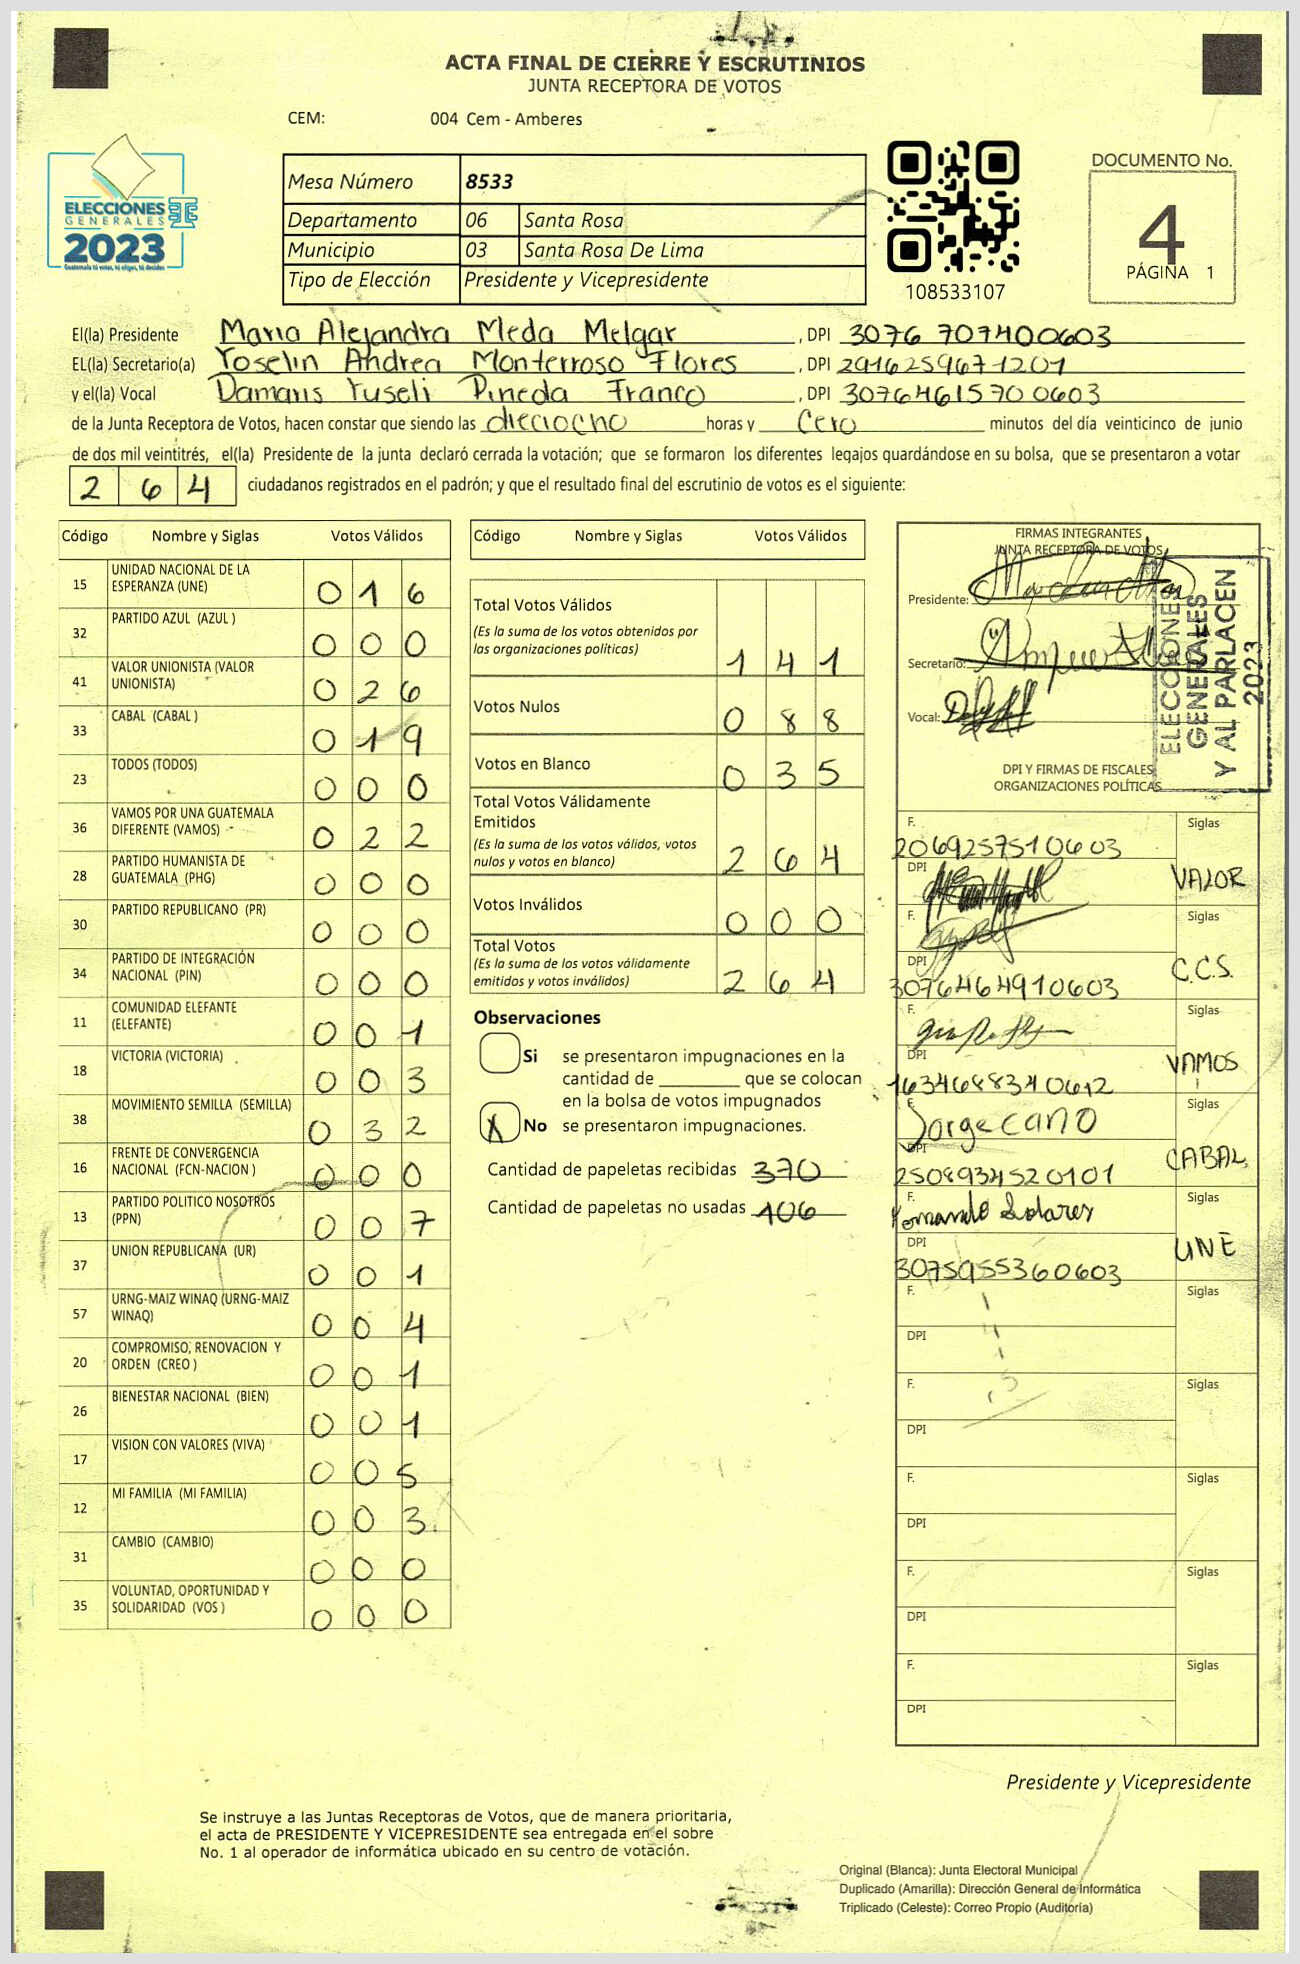 ACTA FINAL DE CIERRE Y ESCRUTINIOS
JUNTA RECEPTORA DE VOTOS
CEM: 004 Cem - Amberes
ELECCIONES
GENERALES
2023
Guatemala tú votas, tú eliges, tú decides
Mesa Número 8533
Departamento 06 Santa Rosa
Municipio 03 Santa Rosa De Lima
Tipo de Elección Presidente y Vicepresidente
108533107
DOCUMENTO No.
4
PÁGINA 1
El(la) Presidente Maria Alejandra Meda Melgar , DPI 3076 707400603
EL(la) Secretario(a) Yoselin Andrea Monterroso Flores , DPI 2916259671201
y el(la) Vocal Damaris Yuseli Pineda Franco , DPI 3076461570 0603
de la Junta Receptora de Votos, hacen constar que siendo las dieciocho horas y Cero minutos del día veinticinco de junio
de dos mil veintitrés, el(la) Presidente de la junta declaró cerrada la votación; que se formaron los diferentes legajos guardándose en su bolsa, que se presentaron a votar
2 6 4 ciudadanos registrados en el padrón; y que el resultado final del escrutinio de votos es el siguiente:
Código Nombre y Siglas Votos Válidos
15 UNIDAD NACIONAL DE LA ESPERANZA (UNE) 0 1 6
32 PARTIDO AZUL (AZUL ) 0 0 0
41 VALOR UNIONISTA (VALOR UNIONISTA) 0 2 6
33 CABAL (CABAL ) 0 1 9
23 TODOS (TODOS) 0 0 0
36 VAMOS POR UNA GUATEMALA DIFERENTE (VAMOS) 0 2 2
28 PARTIDO HUMANISTA DE GUATEMALA (PHG) 0 0 0
30 PARTIDO REPUBLICANO (PR) 0 0 0
34 PARTIDO DE INTEGRACIÓN NACIONAL (PIN) 0 0 0
11 COMUNIDAD ELEFANTE (ELEFANTE) 0 0 1
18 VICTORIA (VICTORIA) 0 0 3
38 MOVIMIENTO SEMILLA (SEMILLA) 0 3 2
16 FRENTE DE CONVERGENCIA NACIONAL (FCN-NACION ) 0 0 0
13 PARTIDO POLITICO NOSOTROS (PPN) 0 0 7
37 UNION REPUBLICANA (UR) 0 0 1
57 URNG-MAIZ WINAQ (URNG-MAIZ WINAQ) 0 0 4
20 COMPROMISO, RENOVACION Y ORDEN (CREO ) 0 0 1
26 BIENESTAR NACIONAL (BIEN) 0 0 1
17 VISION CON VALORES (VIVA) 0 0 5
12 MI FAMILIA (MI FAMILIA) 0 0 3
31 CAMBIO (CAMBIO) 0 0 0
35 VOLUNTAD, OPORTUNIDAD Y SOLIDARIDAD (VOS ) 0 0 0
Código Nombre y Siglas Votos Válidos
Total Votos Válidos
(Es la suma de los votos obtenidos por
las organizaciones políticas) 1 4 1
Votos Nulos 0 8 8
Votos en Blanco 0 3 5
Total Votos Válidamente
Emitidos
(Es la suma de los votos válidos, votos
nulos y votos en blanco) 2 6 4
Votos Inválidos 0 0 0
Total Votos
(Es la suma de los votos válidamente
emitidos y votos inválidos) 2 6 4
Observaciones
Si se presentaron impugnaciones en la
cantidad de ________ que se colocan
en la bolsa de votos impugnados
X No se presentaron impugnaciones.
Cantidad de papeletas recibidas 370
Cantidad de papeletas no usadas 106
FIRMAS INTEGRANTES
JUNTA RECEPTORA DE VOTOS
Presidente:
Secretario:
Vocal:
ELECCIONES
GENERALES
Y AL PARLACEN
2023
DPI Y FIRMAS DE FISCALES
ORGANIZACIONES POLÍTICAS
F. Siglas
2069257510603
DPI VALOR
F. Siglas
DPI C.C.S.
3076464910603
F. Siglas
DPI VAMOS
1634688340612
F. Jorge Cano Siglas
DPI CABAL
2508934520101
F. Siglas
Fernando Solares
DPI UNE
3075955360603
F. Siglas
DPI
F. Siglas
DPI
F. Siglas
DPI
F. Siglas
DPI
F. Siglas
DPI
Presidente y Vicepresidente
Se instruye a las Juntas Receptoras de Votos, que de manera prioritaria,
el acta de PRESIDENTE Y VICEPRESIDENTE sea entregada en el sobre
No. 1 al operador de informática ubicado en su centro de votación.
Original (Blanca): Junta Electoral Municipal
Duplicado (Amarilla): Dirección General de Informática
Triplicado (Celeste): Correo Propio (Auditoría)